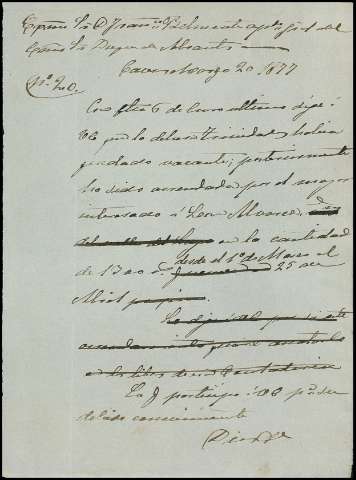 Excmo Sr. D. Franco Belmonte apdo gral del
Excmo Sr. Duque de Abrantes
Caceres Marzo 20 1877
No 20.
Con fecha 6 de Enero ultimo dije á
VE que la dehesa trinidad habia
quedado vacante; posteriormente
ha sido arrendada por el mayor
interesado á Leon Alvarez
en la cantidad
de 1300 r. desde el 1o de Marzo al 25 de
Abril
Lo q participo á VE pa su
debido conocimiento
Dios &a